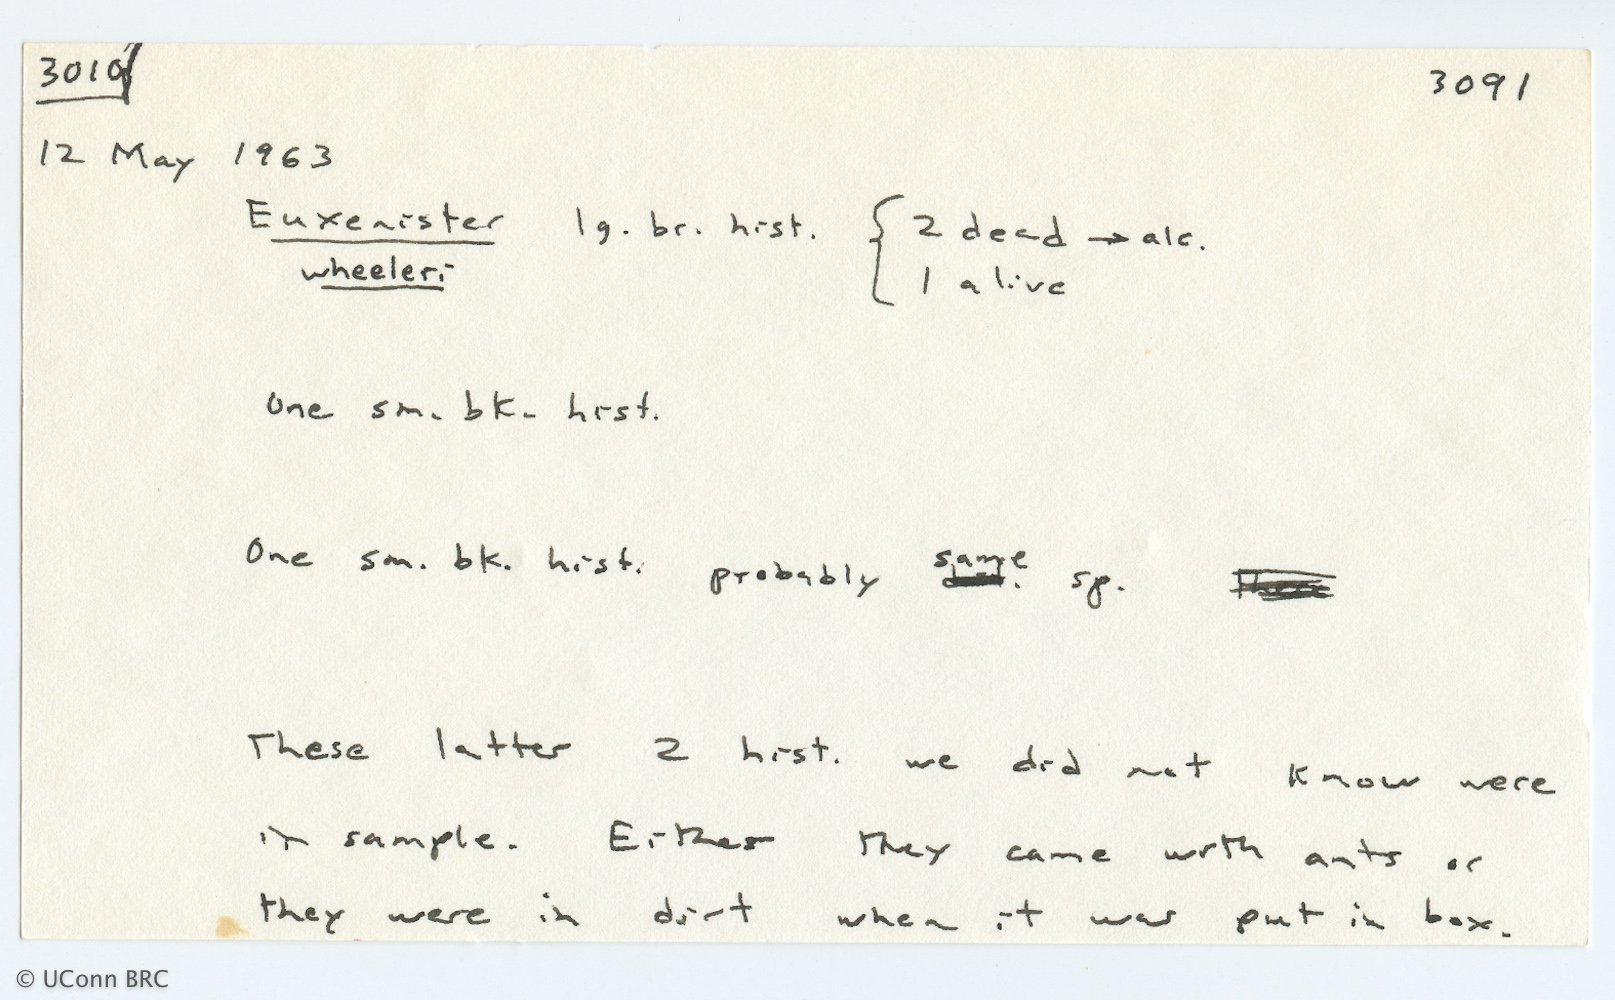 3010 3091
12 May 1963
Euxenister lg. br. hist. { 2 dead → alc.
wheeleri 1 alive
One sm. bk. hist.
One sm. bk. hist. probably same sp.
These latter 2 hist. we did not know were
in sample. Either they came with ants or
they were in dirt when it was put in box.
© UConn BRC